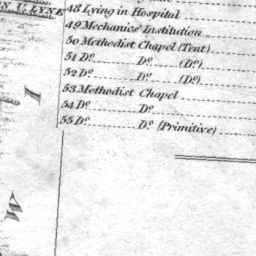 N. U. LYNE
48 Lying in Hospital
49 Mechanics' Institution
50 Methodist Chapel (Tent)
51 Do. Do. (Do.)
52 Do. Do. (Do.)
53 Methodist Chapel
54 Do. Do.
55 Do. Do. (Primitive)